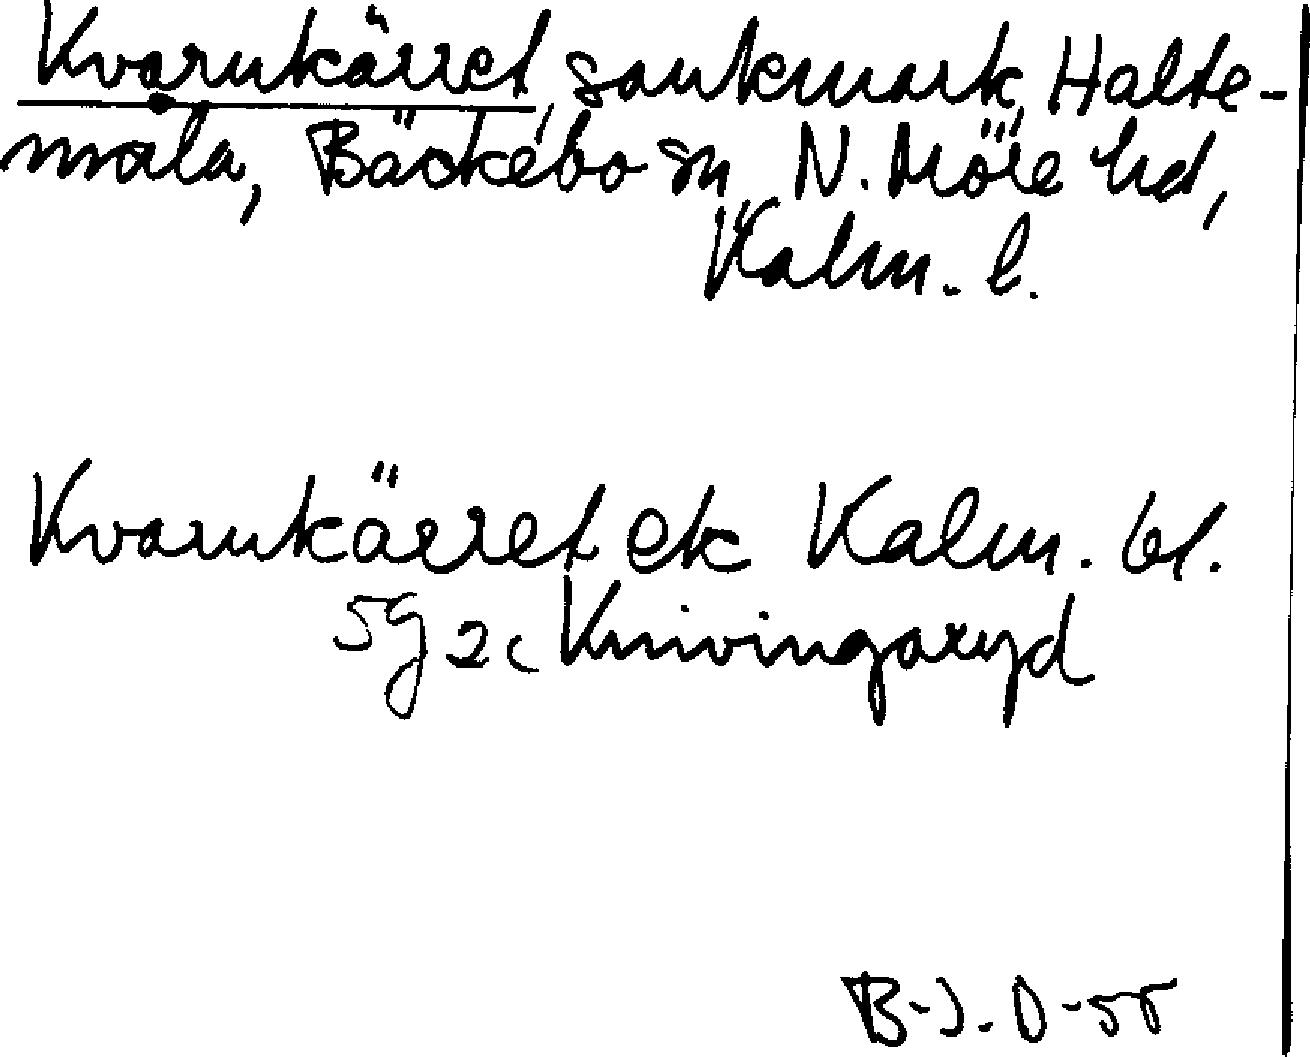 Kvarnkärret, sankmark, Halte-
måla, Bäckebo sn, N. Möre hd,
Kalm. l.
Kvarnkärret ek Kalm. bl.
5g 2c Knivingaryd
B-J. O-55